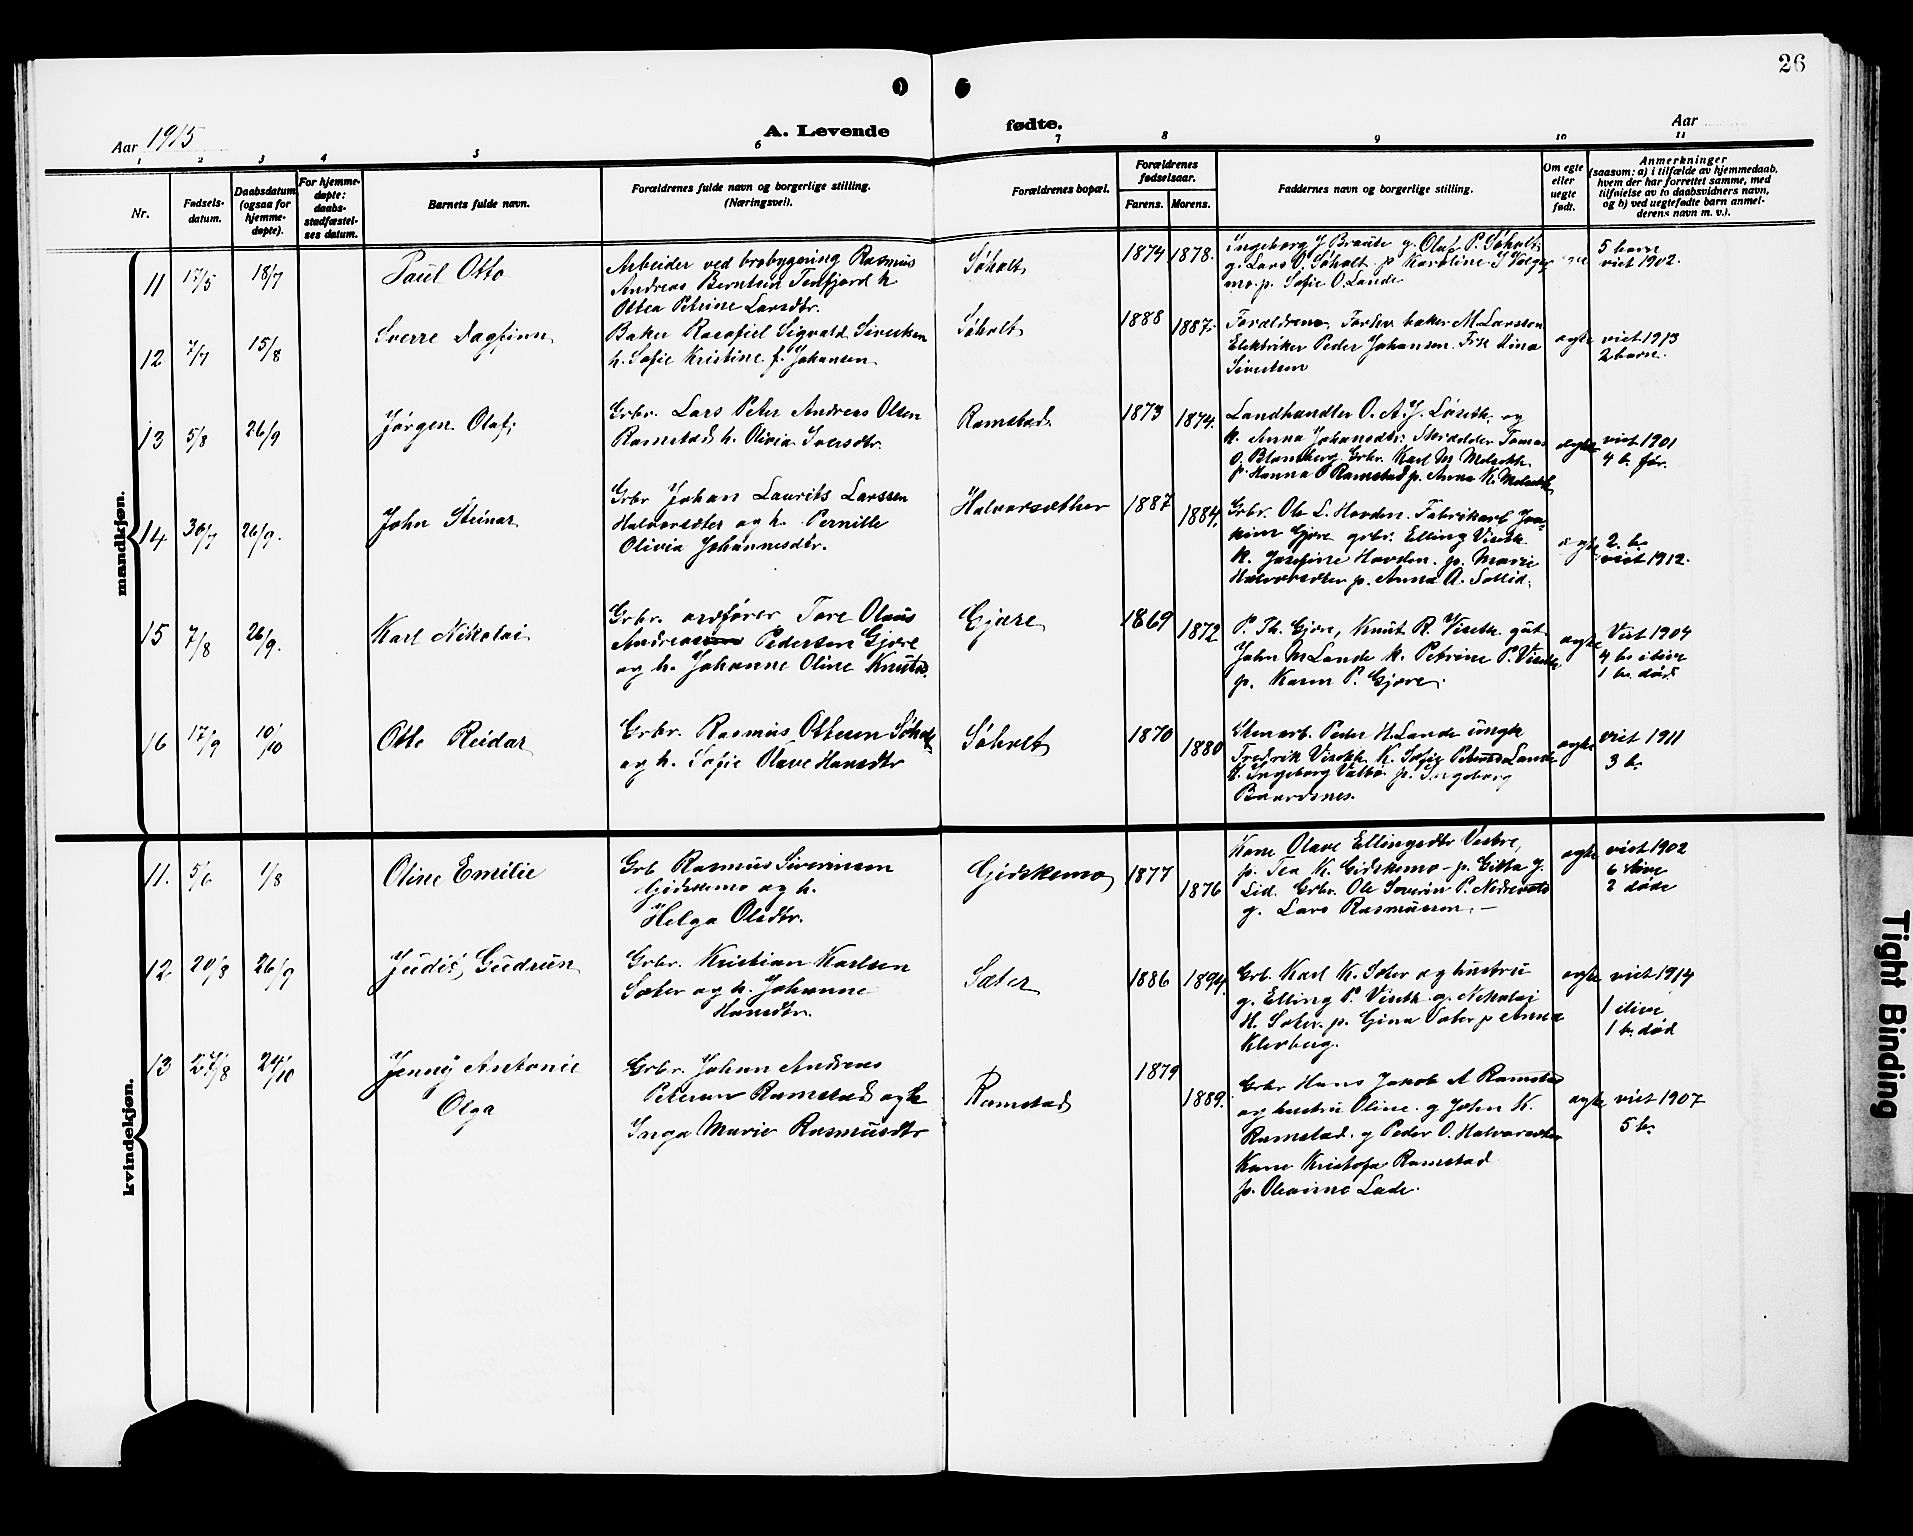 26
Aar 1915
A. Levende
fødte.
Aar
1 2 3 4 5 6 7 8 9 10 11
Nr.
Fødsels-
datum.
Daabsdatum
(ogsaa for
hjemme-
døpte).
For hjemme-
døpte:
daabs-
stadfæstel-
ses datum.
Barnets fulde navn.
Forældrenes fulde navn og borgerlige stilling.
(Næringsvei).
Forældrenes bopæl.
Forældrenes
fødselsaar.
Farens. Morens.
Faddernes navn og borgerlige stilling.
Om egte
eller
uegte
født.
Anmerkninger
(saasom: a) i tilfælde av hjemmedaab,
hvem der har forrettet samme, med
tilføielse av to daabsvidners navn,
og b) ved uegtefødte barn anmel-
derens navn m. v.).
mandkjøn.
11 17/5 18/7 Paul Otto
Arbeider ved brobygning Rasmus
Andreas Berntsen Tenfjord h
Ottea Petrine Larsdtr.
Søholt 1874 1878.
Ingeborg J Braute g. Olaf P. Søholt
g. Lars O. Søholt p Karoline
p. Sofie O. Lande
5 barn
viet 1902.
12 7/7 15/8 Sverre Dagfinn
Baker Sigvald Sivertsen
h. Sofie Kristine f. Johansen
Søholt 1888 1887.
Forældrene, baker M Larssen
Elektriker Peder Johansen. Frk Dina
Sivertsen
egte viet 1913
2 barn.
13 5/8 26/9 Jørgen Olaf
Grbr. Lars Peter Andreas Olsen
Ramstad h. Olivia Iversdtr.
Ramstad 1873 1874.
Landhandler O. A. J. Løseth og
k. Anna Johansdtr. Skrædder Tomas
O. Blomberg. Grbr. Karl M Melseth
p Hanna P Ramstad p. Anna K. Melseth
egte viet 1901
4 b. før.
14 30/7 26/9. John Steinar
Grbr Johan Laurits Larssen
Halvorsæter og h. Pernille
Olivia Johannesdtr.
Halvorsæther 1887 1884.
Grbr. Ole L. Hovden. Fabrikarb Joa-
kim Gjøre grbr. Elling Viseth
k. Josefine Hovden. p. Marie
Halvorsæter p. Anna A. Sollid.
egte 2. b.
viet 1912.
15 7/8 26/9. Karl Nikolai
Grbr. ordfører Tore Olaus
Andreas Pedersen Gjøre
og h. Johanne Oline Knutsd.
Gjøre 1869 1872
P. Th. Gjøre, Knut R. Viseth gut
John M Lande k. Petrine P. Viseth
p. Karen P. Gjøre.
egte Viet 1904
4 b. ilive
1 b. død
16 17/9 10/10 Otto Reidar
Grbr. Rasmus Ottesen Søholt
og h. Sofie Olave Hansdtr
Søholt 1870 1880
Stenarb. Peder H. Lande ungk
Fredrik Viseth K. Sofie Lande
Ingeborg Valbø p. Ingeborg
Baardsnes.
egte viet 1911
3 b.
kvindekjøn.
11. 5/6 1/8 Oline Emilie
Grb Rasmus Severinsen
Gjidskemo og h.
Helga Olsdtr.
Gjidskemo 1877 1876
Kone Olave Ellingsdtr Vestre,
p. Tea K. Gidskemo - p. Gitta J.
Lid. Grbr. Ole Severin P.
g. Lars Rasmussen. —
egte viet 1902
6 ilive
2 døde
12 20/8 26/9 Judit, Gudrun
Grbr. Kristian Karlsen
Sæter og h. Johanne
Hansdtr.
Sæter 1886 1894.
Grb. Karl K. Sæter og hustru
g. Elling P. Viseth g. Nikolai
H. Sæter. p. Gina Sæter p Anna
Kleberg.
egte viet 1914
1 ilive
1 b. død
13 27/8 24/10 Jenny Antonie
Olga
Grbr. Johan Andreas
Petersen Ramstad og h
Inga Marie Rasmusdtr
Ramstad 1879 1889.
Grbr Hans Jakob A Ramstad
og hustru Oline. g John K.
Ramstad. g Peder O. Halvorsæter
Kone Kristofa Ramstad
p. Lade.
egte viet 1907
5 b.
Tight Binding